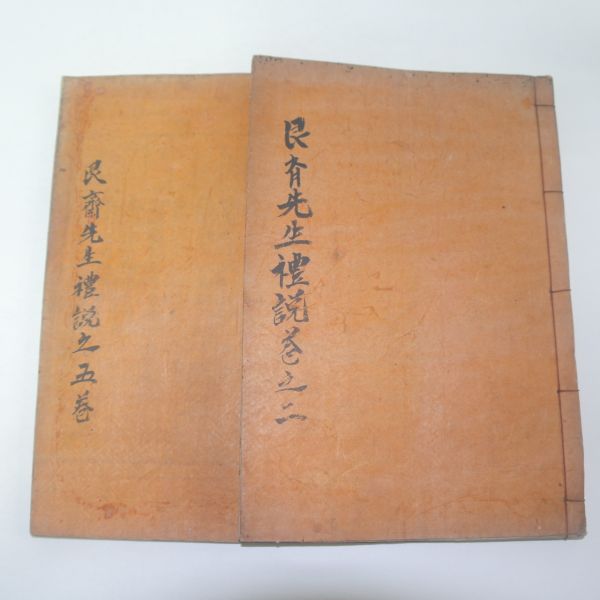 艮斎先生禮説卷之二
艮齋先生禮説之五卷